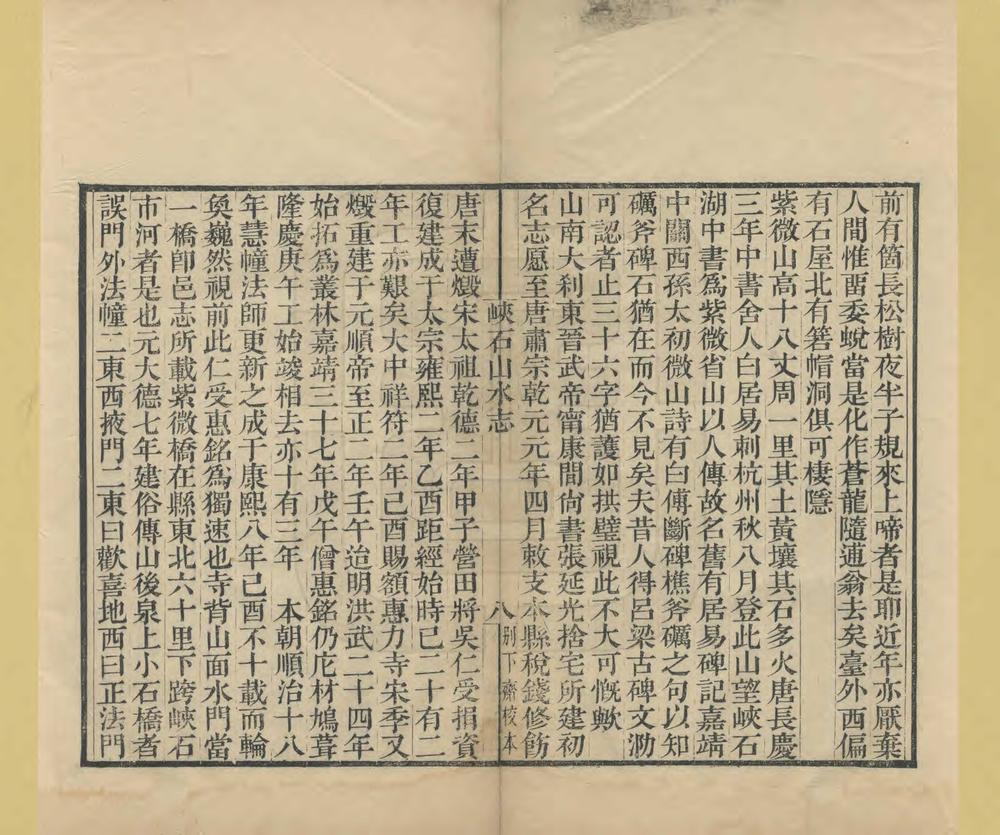 前有箇長松樹夜半子規來上啼者是聊近年亦厭棄
人間惟畱委蛻當是化作蒼龍隨逋翁去矣臺外西偏
有石屋北有箬帽洞俱可棲隱
紫微山高十八丈周一里其土黃壤其石多火唐長慶
三年中書舍人白居易刺杭州秋八月登此山望峽石
湖中書爲紫微省山以人傳故名舊有居易碑記嘉靖
中關西孫太初微山詩有白傅斷碑樵斧礪之句以知
礪斧碑石猶在而今不見矣夫昔人得呂梁古碑文泐
可認者止三十六字猶護如拱璧視此不大可慨歟
山南大刹東晉武帝甯康間尙書張延光捨宅所建初
名志愿至唐肅宗乾元元年四月敕支本縣稅錢修飭
峽石山水志
八
別下齋校本
唐末遭燬宋太祖乾德二年甲子營田將吳仁受捐資
復建成于太宗雍熙二年乙酉距經始時已二十有二
年工亦艱矣大中祥符二年己酉賜額惠力寺宋季又
燬重建于元順帝至正二年壬午迨明洪武二十四年
始拓爲叢林嘉靖三十七年戊午僧惠銘仍庀材鳩葺
隆慶庚午工始竣相去亦十有三年 本朝順治十八
年慧幢法師更新之成于康熙八年己酉不十載而輪
奐巍然視前此仁受惠銘爲獨速也寺背山面水門當
一橋卽邑志所載紫微橋在縣東北六十里下跨峽石
市河者是也元大德七年建俗傳山後泉上小石橋者
誤門外法幢二東西掖門二東曰歡喜地西曰正法門